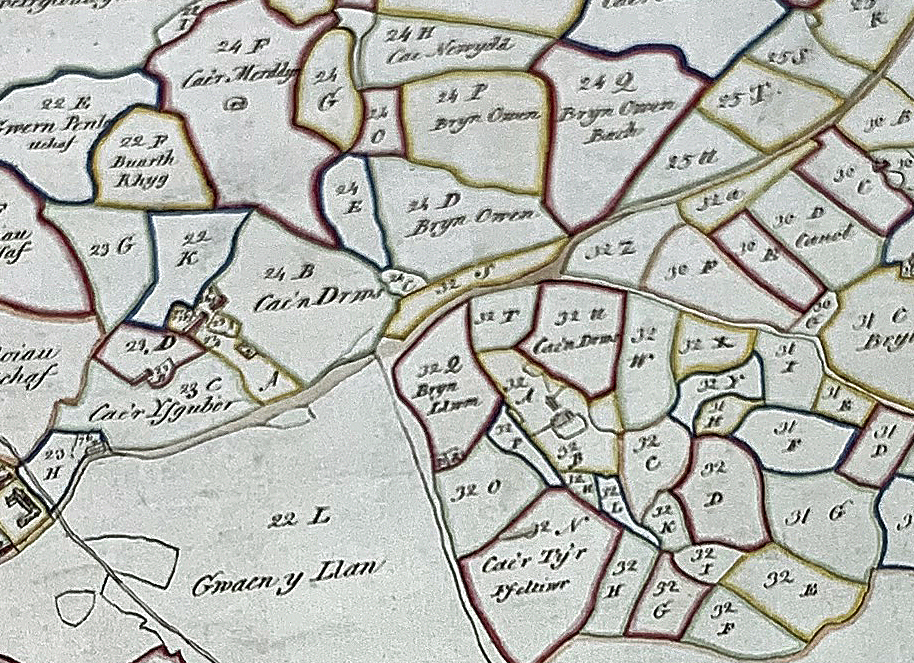 24 F
Cae'r Merddyn
24
G
24 H
Cae Newydd
24 P
Bryn Owen
24 Q
Bryn Owen
Bach
25 S
25 T
25 U
30 B
30
C
22 E
22 F
Buarth
Rhyg
24
E
24 D
Bryn Owen
32 a
30 D
Cunol
30
E
30 F
32 Z
23 G
22
K
24 B
Cae'n Drws
24 C
32 S
32 T
32 U
Cae'n Drws
32
W
32 X
32 Y
31
I
31 C
31
E
31
H
31 F
31
D
23 D
A
23 C
Cae'r Ysgubor
23
H
32 Q
Bryn
Llwm
32
A
32
P
32
B
32
C
32
D
32
L
32
K
31 G
32 O
32 N
Cae'r Ty'r
Ffeltiwr
32
H
32
G
32
I
32
F
32
E
22 L
Gwaen y Llan